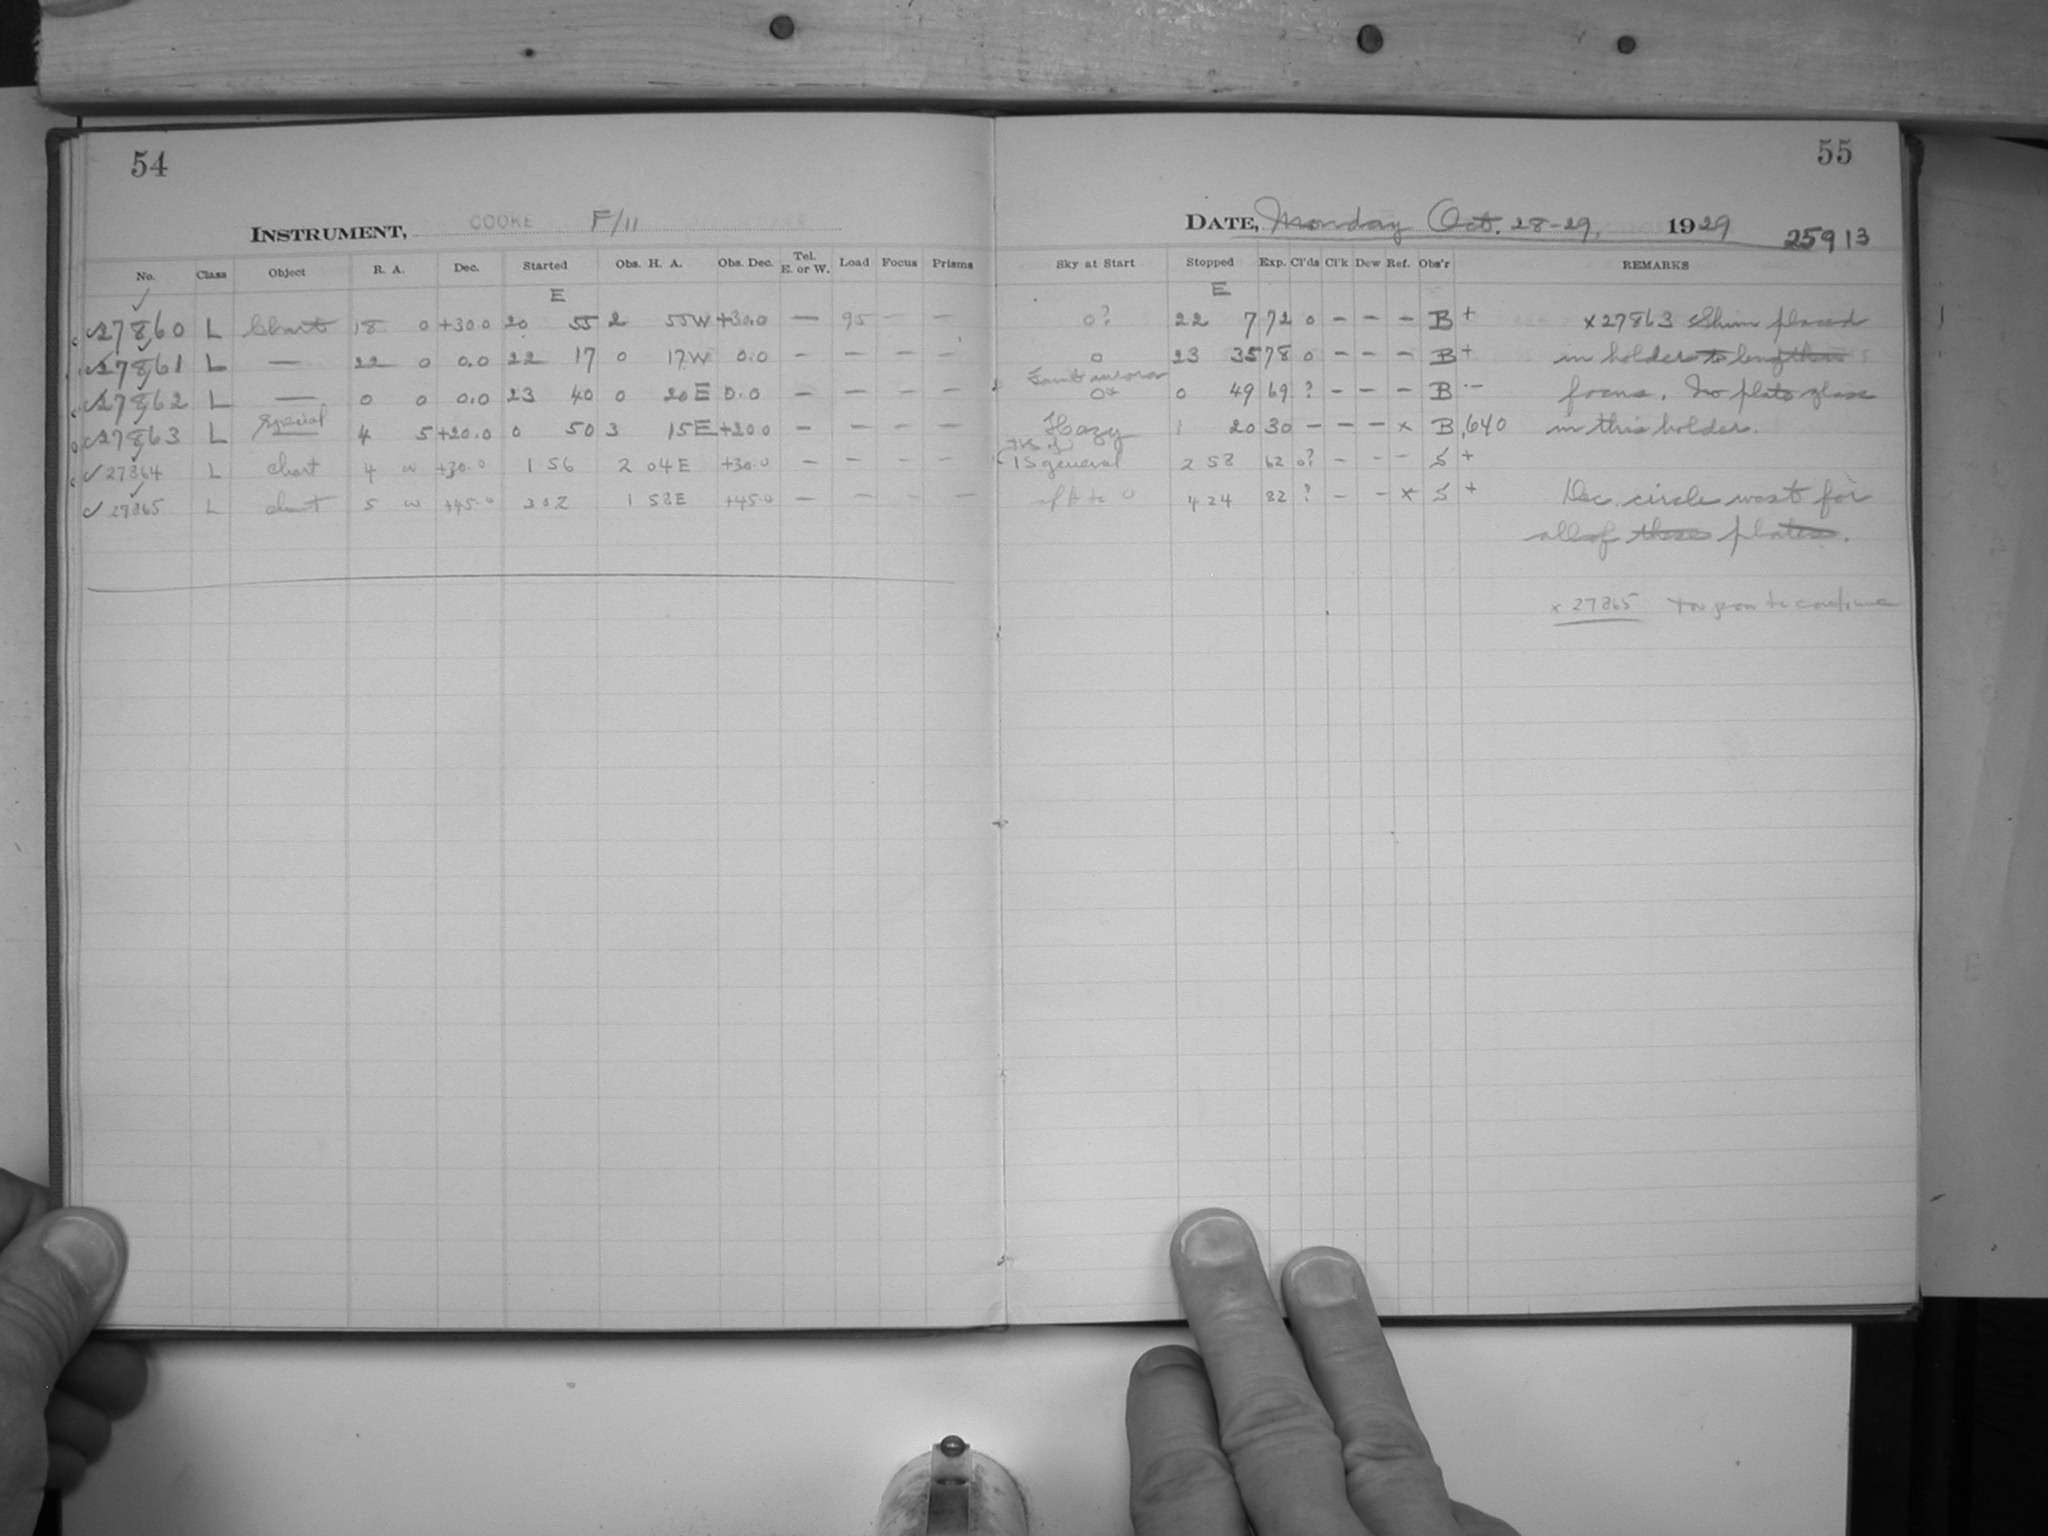 54
INSTRUMENT, COOKE F/11
No. Class Object R. A. Dec. Started Obs. H. A. Obs. Dec. Tel. E. or W. Load Focus Prisms
E
27860 L Chart 18 0 +30.0 20 55 2 55W +30.0 — 95 — —
27861 L — 22 0 0.0 22 17 0 17W 0.0 — — — —
27862 L — 0 0 0.0 23 40 0 20E 0.0 — — — —
27863 L Special 4 5 +20.0 0 50 3 15E +20.0 — — — —
27864 L chart 4 +30.0 1 56 2 04E +30.0 — — — —
27865 L chart 5 +45.0 3 02 1 58E +45.0 — — — —
55
DATE, Monday Oct. 28-29, 1929 25913
Sky at Start Stopped Exp. Cl'ds Cl'k Dew Ref. Obs'r REMARKS
E
0? 22 7 72 0 – – – B + x27863 Shim placed
0 23 35 78 0 – – – B + in holder to lengthen
Faint aurora
0 49 69 ? – – – B – focus. No plate glass
Hazy 1 20 30 – – – x B ,640 in this holder.
general 2 58 62 0? – – – S +
4 24 82 ? – – x S + Dec. circle west for
all of these plates.
x 27865 to continue